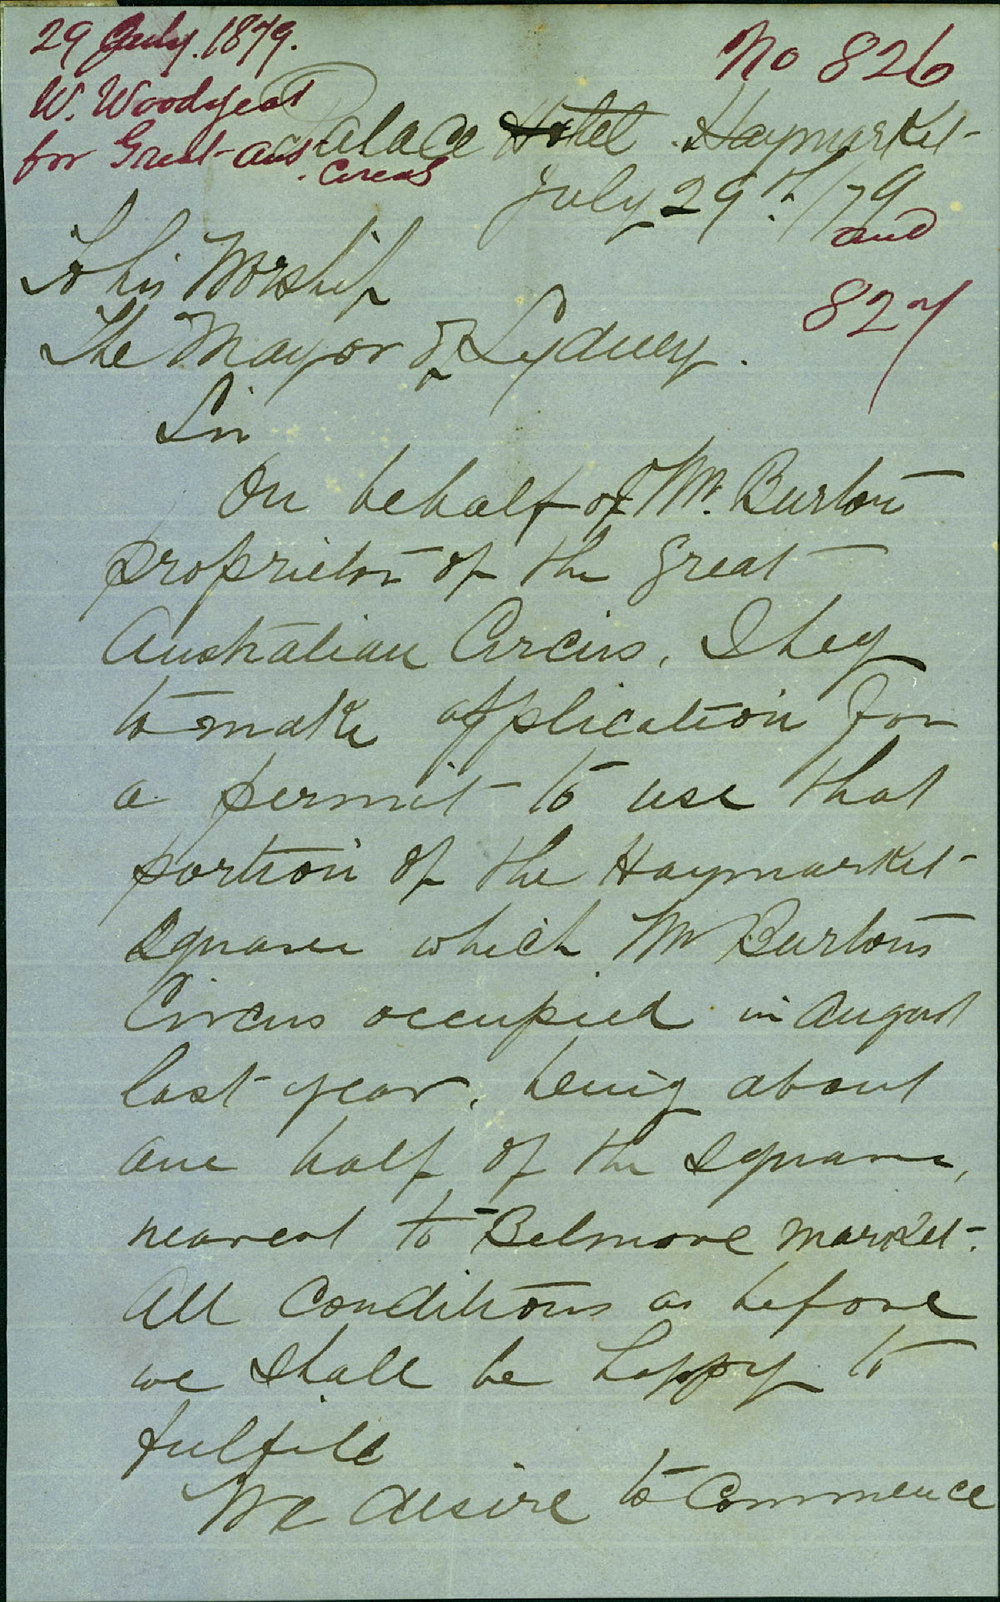 29 July. 1879.
No 826
W. Woodyeat
for Great Aus. Circus
Palace Hotel. Haymarket
July 29th/79
and
827
To his Worship
The Mayor of Sydney.
Sir
On behalf of Mr. Burton
proprietor of the Great
Australian Circus, I beg
to make application for
a permit to use that
portion of the Haymarket
Square which Mr Burtons
Circus occupied in August
last year, being about
one half of the Square,
nearest to Belmore Market.
All Conditions as before
we shall be happy to
fulfill
We desire to Commence